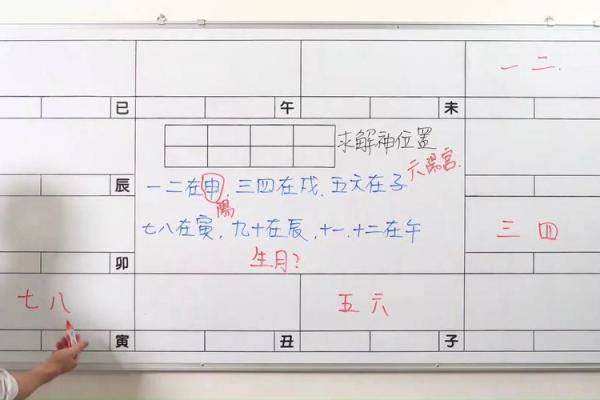 一 二.
巳
午
未
求解神位置
六陽宮.
辰
一二在申,三四在戌,五六在子
陽
三 四
七八在寅,九十在辰,十一.十二在午
生月?
卯
七 八
五 六
寅
丑
子